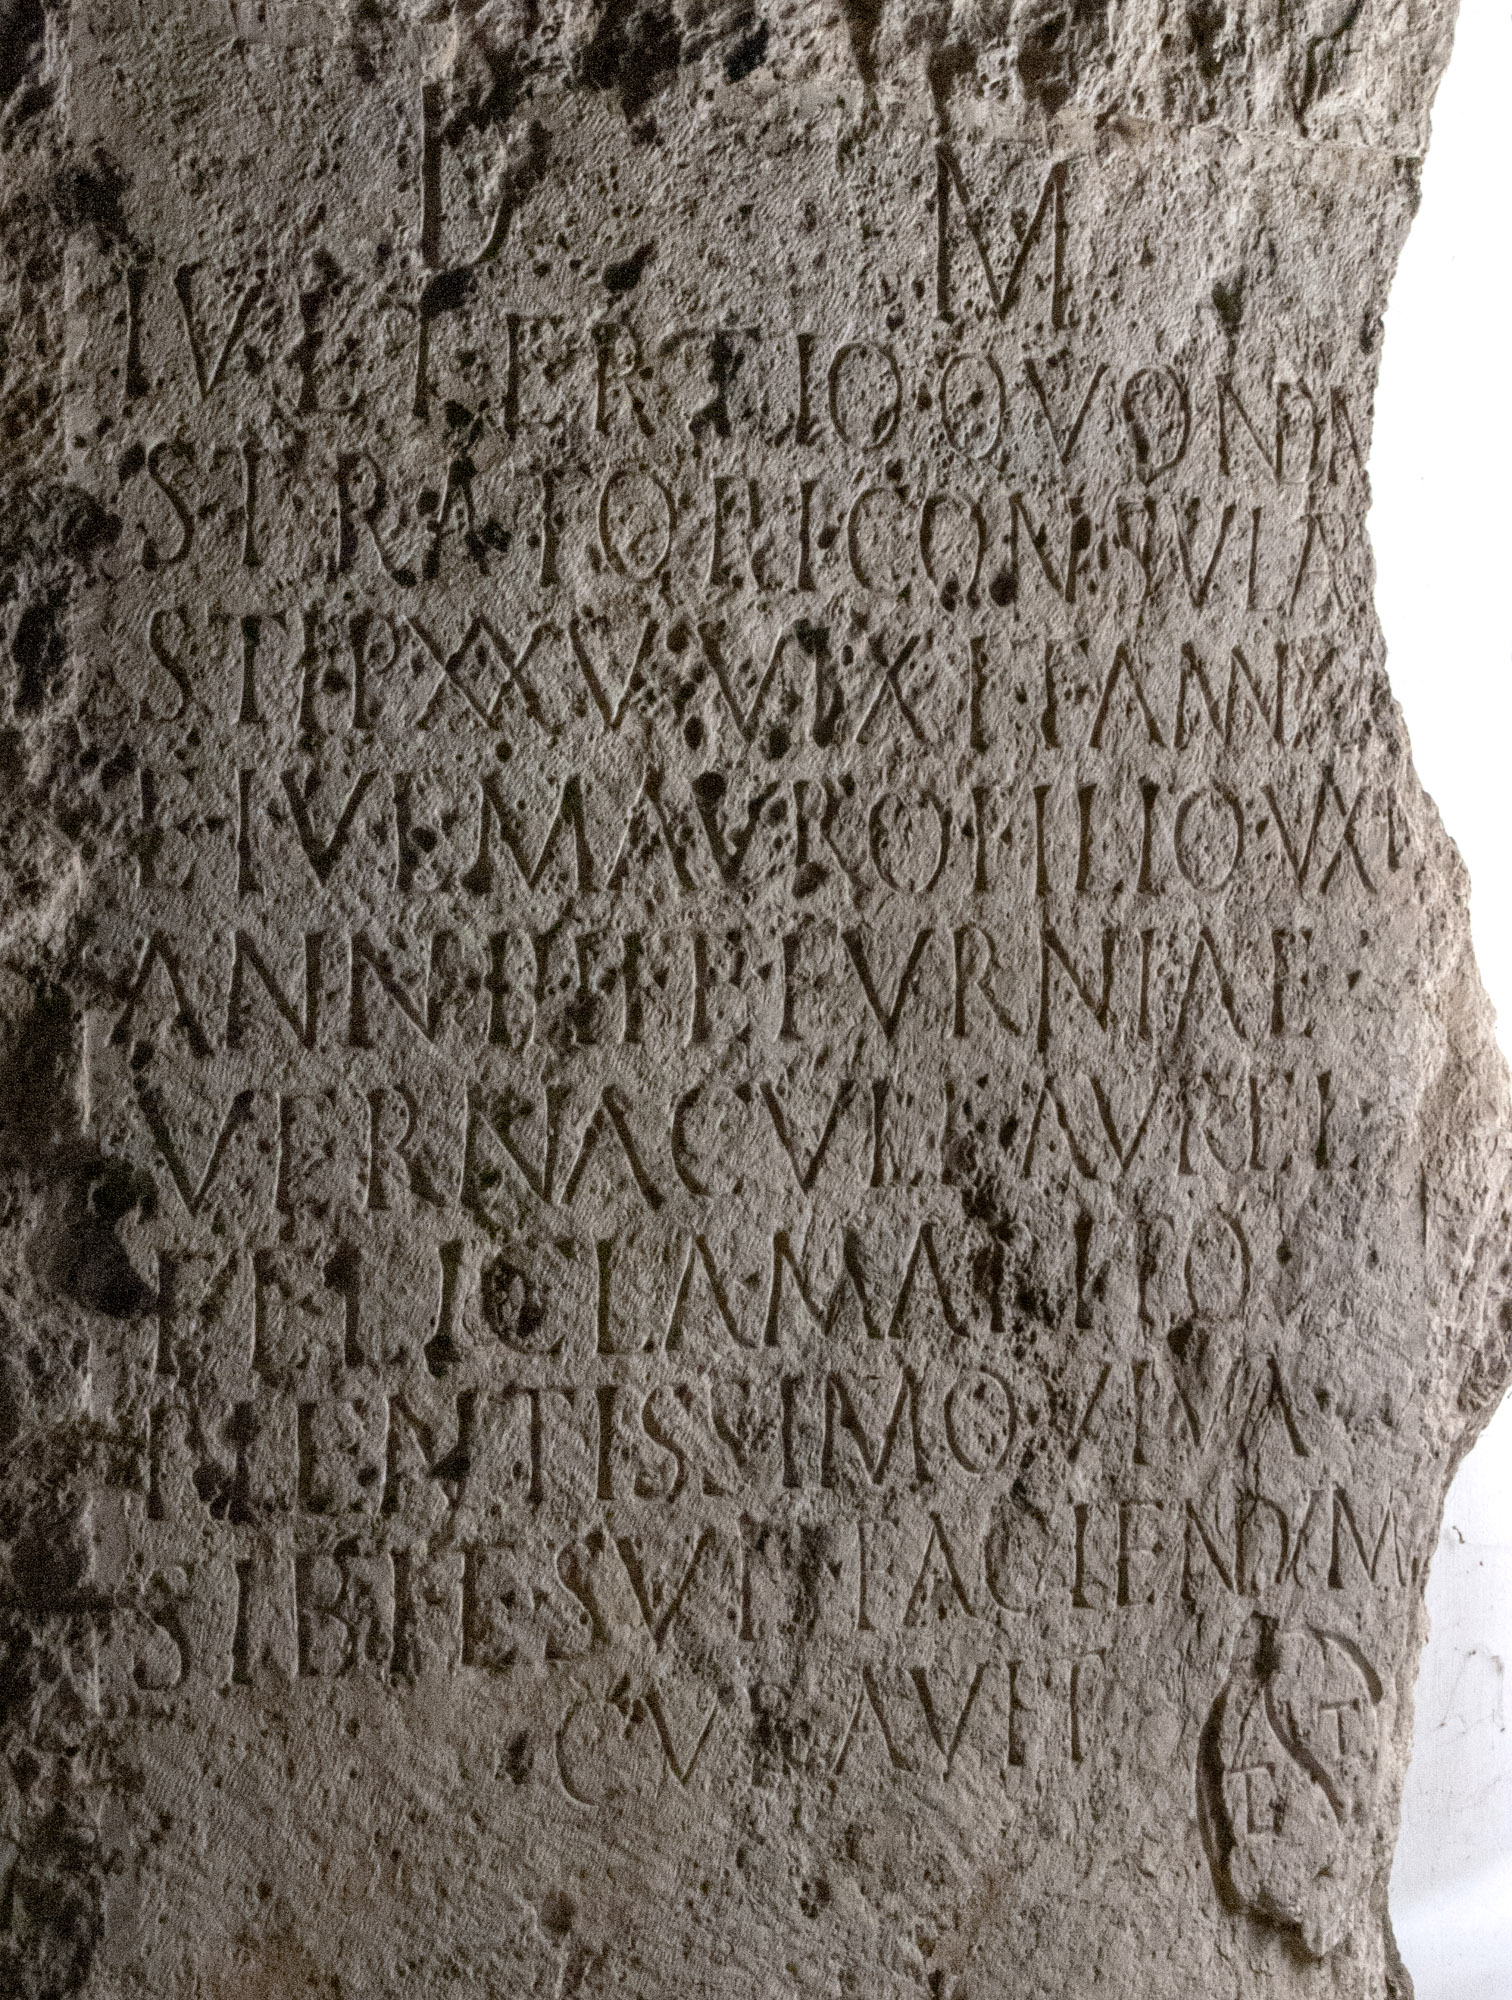 D M
IVL TERTIO QVONDA
STRATORI CONSVLA
STIP XXV VIXIT ANN
ET IVL MAVRO FILIO VIXI
ANN FVRNIAE
VERNACVLE AVREL
FELICLA MARITO
PIENTISSIMO VIVA
SIBI ET SVIS FACIENDVM
CVRAVIT